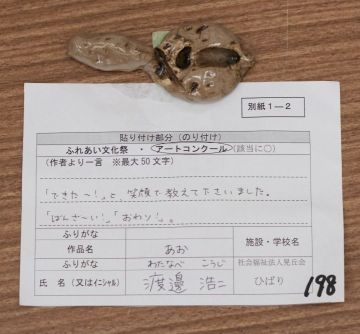 別紙1－2
貼り付け部分(のり付け)
ふれあい文化祭 ・ アートコンクール (該当に○)
(作者より一言 ※最大50文字)
「できた～!」と、笑顔で教えて下さいました。
「ばんざ～い!」「おわり!」。
ふりがな
作品名
あお
施設・学校名
ふりがな
わたなべ こうじ
社会福祉法人晃丘会
氏 名 (又はイニシャル)
渡邉 浩二
ひばり
198